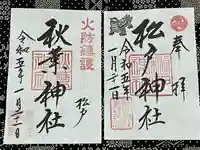 奉拝
松戸神社
令和五年
一月二日
火防鎮護
松戸
秋葉神社
令和五年一月二日